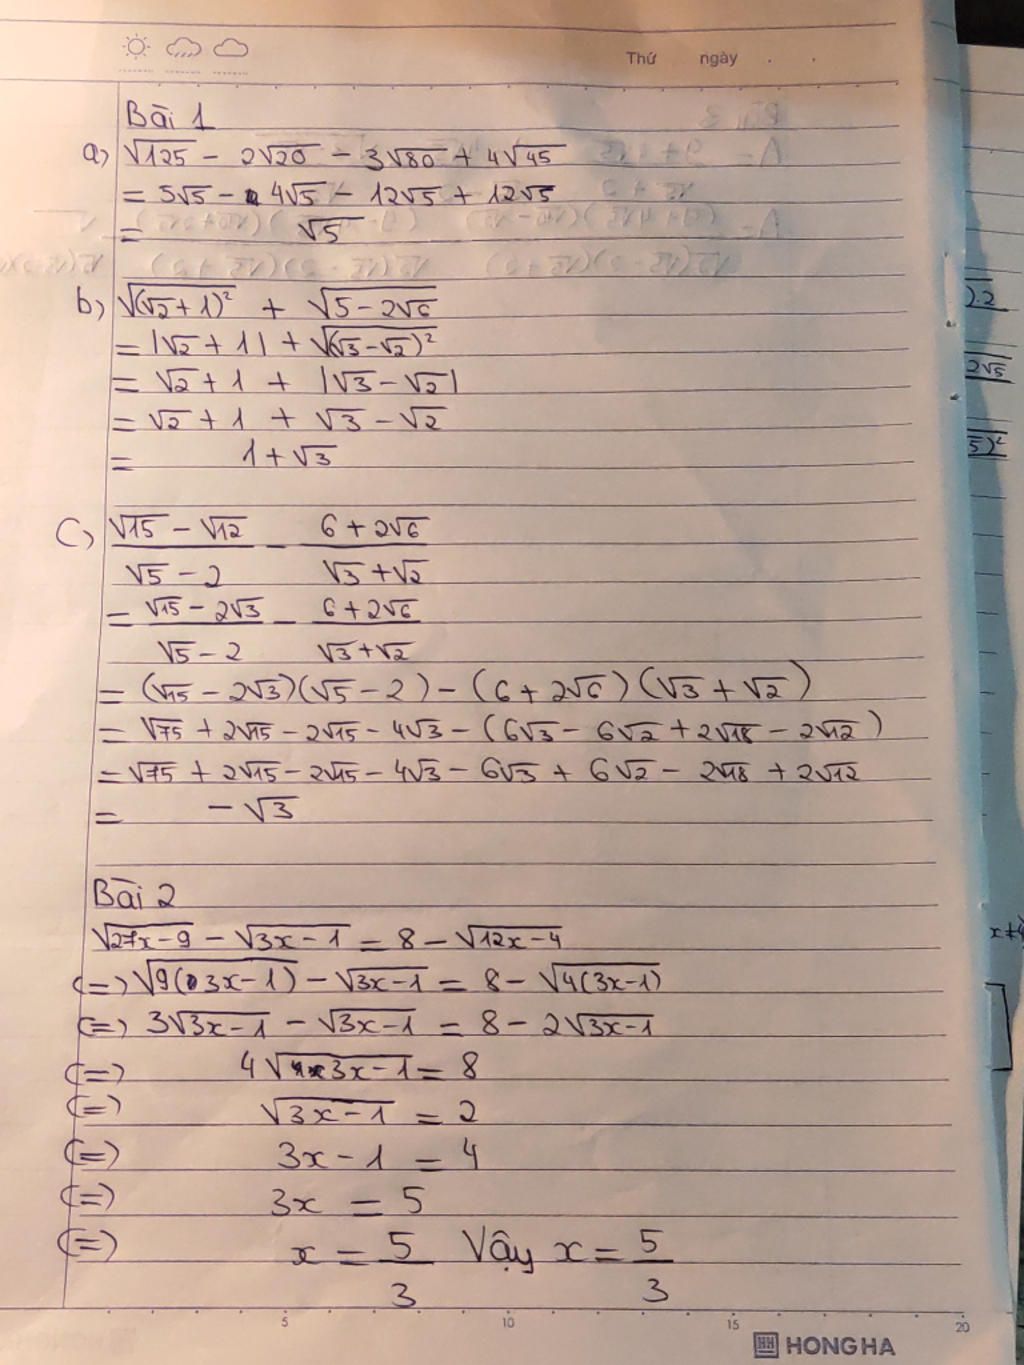 Thứ ngày . .
Bài 1
a) √125 - 2√20 - 3√80 + 4√45
= 5√5 - 4√5 - 12√5 + 12√5
= √5
b) √(√2+1)² + √5-2√6
= |√2+1| + √(√3-√2)²
= √2+1 + |√3-√2|
= √2+1 + √3-√2
= 1+√3
C) (√15-√12)/(√5-2) - (6+2√6)/(√3+√2)
= (√15-2√3)/(√5-2) - (6+2√6)/(√3+√2)
= (√15-2√3)(√5-2) - (6+2√6)(√3+√2)
= √75 + 2√15 - 2√15 - 4√3 - (6√3 - 6√2 + 2√18 - 2√12)
= √75 + 2√15 - 2√15 - 4√3 - 6√3 + 6√2 - 2√18 + 2√12
= -√3
Bài 2
√27x-9 - √3x-1 = 8 - √12x-4
(=) √9(3x-1) - √3x-1 = 8 - √4(3x-1)
(=) 3√3x-1 - √3x-1 = 8 - 2√3x-1
(=) 4√3x-1 = 8
(=) √3x-1 = 2
(=) 3x-1 = 4
(=) 3x = 5
(=) x = 5/3 Vậy x = 5/3
5 10 15 20
HH HONG HA